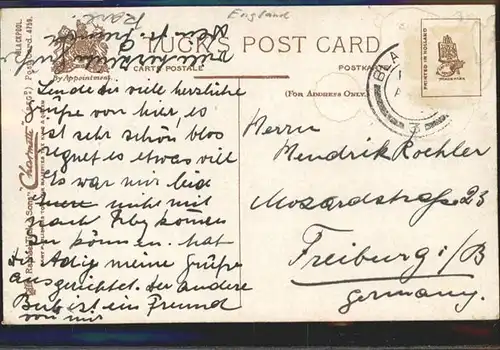 Rare.
England
TUCK'S POST CARD
CARTE POSTALE
POSTKARTE
By Appointment.
(FOR ADDRESS ONLY.)
PRINTED IN HOLLAND
TRADE MARK
BLA
Raphael Tuck & Sons' "Charmette" Postcard
Sende dir viel herzliche
Grüße von hier, es
ist sehr schön, blos
regnet es etwas viel
Es war mir leid
nicht mit
nach kommen
zu können. hat
dir meine Grüße
ausgerichtet. der andere
Bub ist ein Freund
von mir
Herrn
Hendrik Roehler
Mozardstraße 23
Freiburg i/B
Germany.